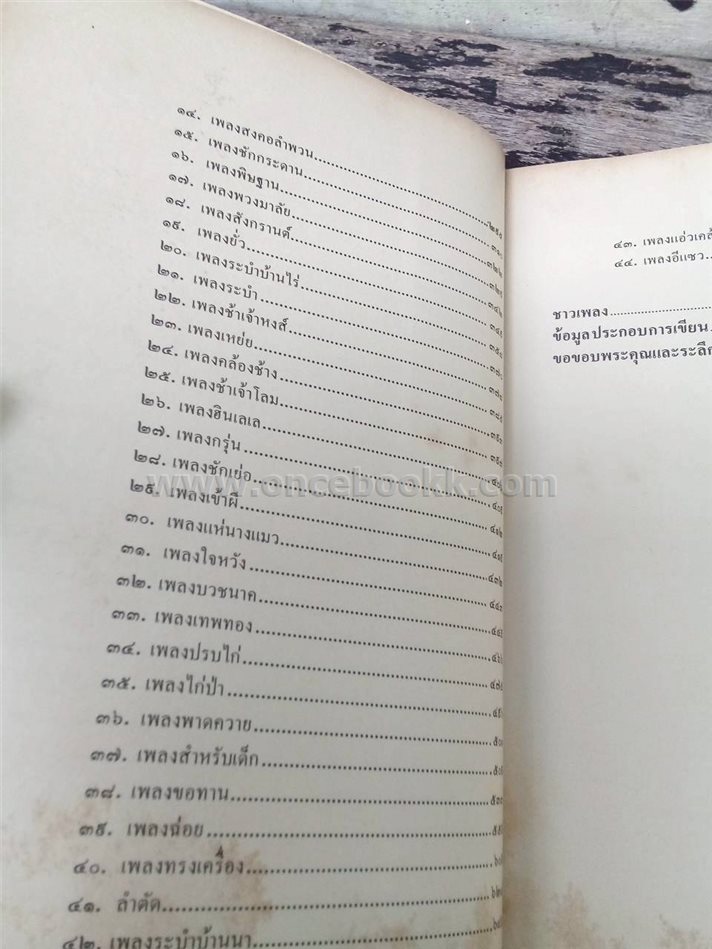 ๑๔. เพลงสงคอลำพวน
๑๕. เพลงชักกระดาน
๑๖. เพลงพิษฐาน
๑๗. เพลงพวงมาลัย
๑๘. เพลงสังกรานต์
๑๙. เพลงยั่ว
๒๐. เพลงระบำบ้านไร่
๒๑. เพลงระบำ
๒๒. เพลงช้าเจ้าหงส์
๒๓. เพลงเหย่ย
๒๔. เพลงคล้องช้าง
๒๕. เพลงช้าเจ้าโลม
๒๖. เพลงฮินเลเล
๒๗. เพลงกรุ่น
๒๘. เพลงชักเย่อ
๒๙. เพลงเข้าผี
๓๐. เพลงแห่นางแมว
๓๑. เพลงใจหวัง
๓๒. เพลงบวชนาค
๓๓. เพลงเทพทอง
๓๔. เพลงปรบไก่
๓๕. เพลงไก่ป่า
๓๖. เพลงพาดควาย
๓๗. เพลงสำหรับเด็ก
๓๘. เพลงขอทาน
๓๙. เพลงฉ่อย
๔๐. เพลงทรงเครื่อง
๔๑. ลำตัด
๔๒. เพลงระบำบ้านนา
๔๓. เพลงแอ่วเคล้
๔๔. เพลงอีแซว
ชาวเพลง
ข้อมูลประกอบการเขียน
ขอขอบพระคุณและระลึก
www.oncebookk.com